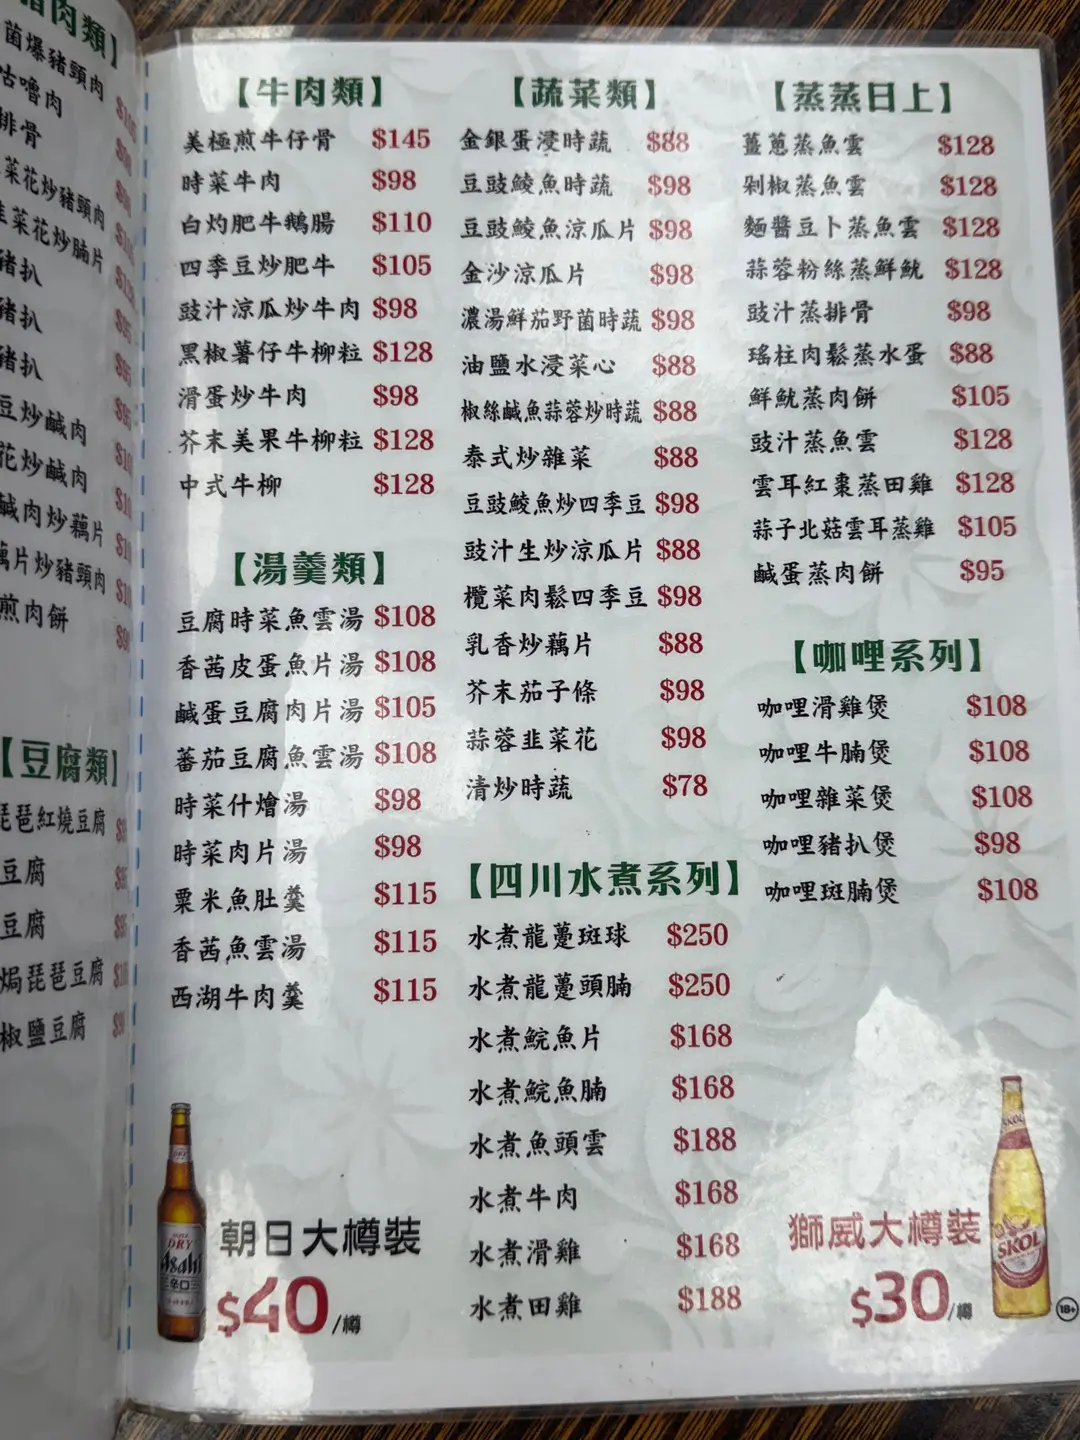 豬肉類】
菌爆豬頸肉
咕嚕肉
排骨
菜花炒豬頸肉
韭菜花炒腩片
豬扒
豬扒
豬扒
豆炒鹹肉
花炒鹹肉
鹹肉炒藕片
藕片炒豬頸肉
煎肉餅
【豆腐類】
琵琶紅燒豆腐
豆腐
豆腐
焗琵琶豆腐
椒鹽豆腐
【牛肉類】
美極煎牛仔骨 $145
時菜牛肉 $98
白灼肥牛鵝腸 $110
四季豆炒肥牛 $105
豉汁涼瓜炒牛肉 $98
黑椒薯仔牛柳粒 $128
滑蛋炒牛肉 $98
芥末美果牛柳粒 $128
中式牛柳 $128
【湯羹類】
豆腐時菜魚雲湯 $108
香茜皮蛋魚片湯 $108
鹹蛋豆腐肉片湯 $105
蕃茄豆腐魚雲湯 $108
時菜什燴湯 $98
時菜肉片湯 $98
粟米魚肚羹 $115
香茜魚雲湯 $115
西湖牛肉羹 $115
Asahi
DRY
辛口
朝日大樽裝
$40/樽
【蔬菜類】
金銀蛋浸時蔬 $88
豆豉鯪魚時蔬 $98
豆豉鯪魚涼瓜片 $98
金沙涼瓜片 $98
濃湯鮮茄野菌時蔬 $98
油鹽水浸菜心 $88
椒絲鹹魚蒜蓉炒時蔬 $88
泰式炒雜菜 $88
豆豉鯪魚炒四季豆 $98
豉汁生炒涼瓜片 $88
欖菜肉鬆四季豆 $98
乳香炒藕片 $88
芥末茄子條 $98
蒜蓉韭菜花 $98
清炒時蔬 $78
【四川水煮系列】
水煮龍躉斑球 $250
水煮龍躉頭腩 $250
水煮鯇魚片 $168
水煮鯇魚腩 $168
水煮魚頭雲 $188
水煮牛肉 $168
水煮滑雞 $168
水煮田雞 $188
【蒸蒸日上】
薑蔥蒸魚雲 $128
剁椒蒸魚雲 $128
麵醬豆卜蒸魚雲 $128
蒜蓉粉絲蒸鮮魷 $128
豉汁蒸排骨 $98
瑤柱肉鬆蒸水蛋 $88
鮮魷蒸肉餅 $105
豉汁蒸魚雲 $128
雲耳紅棗蒸田雞 $128
蒜子北菇雲耳蒸雞 $105
鹹蛋蒸肉餅 $95
【咖哩系列】
咖哩滑雞煲 $108
咖哩牛腩煲 $108
咖哩雜菜煲 $108
咖哩豬扒煲 $98
咖哩斑腩煲 $108
獅威大樽裝
$30/樽
SKOL
SKOL
18+